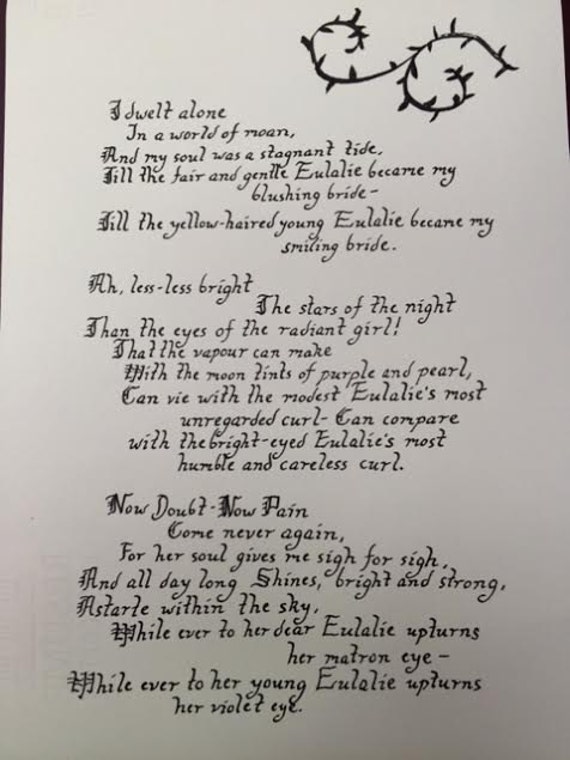 I dwelt alone
In a world of moan,
And my soul was a stagnant tide,
Till the fair and gentle Eulalie became my
blushing bride-
Till the yellow-haired young Eulalie became my
smiling bride.
Ah, less-less bright
The stars of the night
Than the eyes of the radiant girl!
That the vapour can make
With the moon tints of purple and pearl,
Can vie with the modest Eulalie's most
unregarded curl- Can compare
with the bright-eyed Eulalie's most
humble and careless curl.
Now Doubt-Now Pain
Come never again,
For her soul gives me sigh for sigh,
And all day long Shines, bright and strong,
Astarte within the sky,
While ever to her dear Eulalie upturns
her matron eye-
While ever to her young Eulalie upturns
her violet eye.